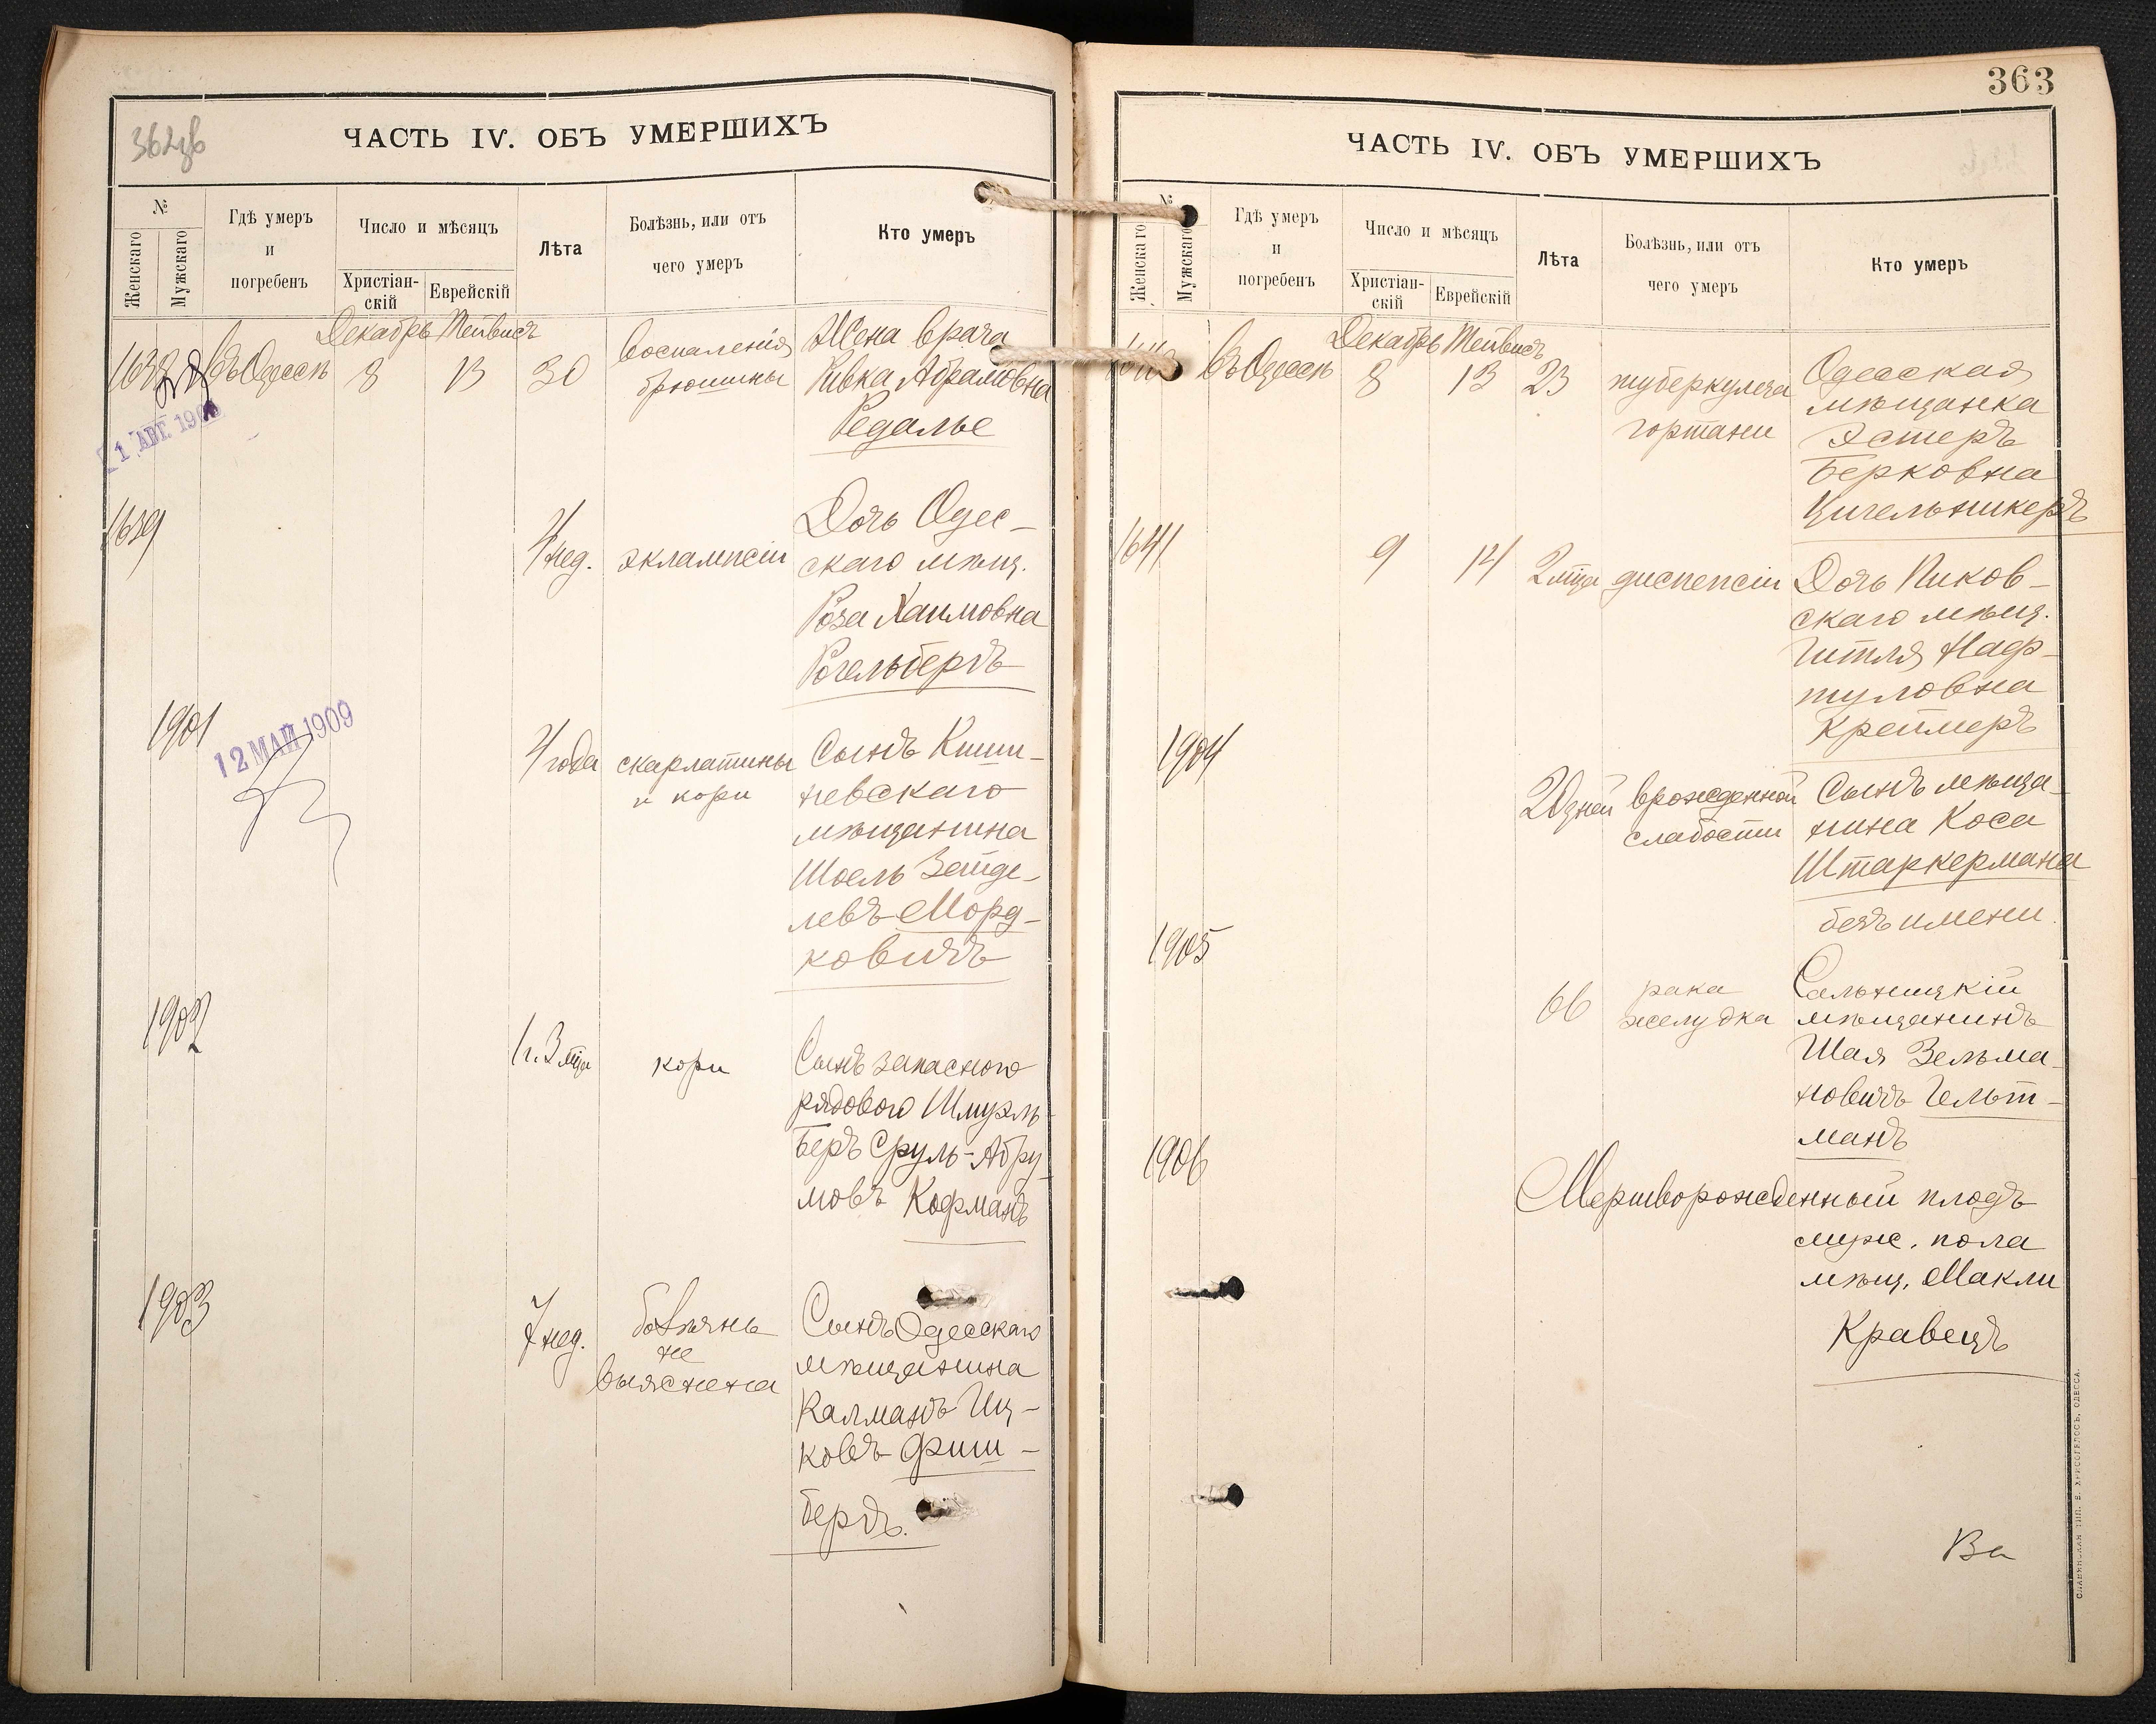 362об
ЧАСТЬ IV. ОБЪ УМЕРШИХЪ
№
Женскаго
Мужскаго
Гдѣ умеръ
и
погребенъ
Число и мѣсяцъ
Христіан-
скій
Еврейскій
Лѣта
Болѣзнь, или отъ
чего умеръ
Кто умеръ
Декабрь Тейвисъ
1638 въ Одессѣ 8 13 30 воспаленія
брюшины
Жена врача
Ривка Абрамовна
Редалье
1639
4 нед. эклампсіи
Дочь Одес-
скаго мѣщ.
Роза Хаимовна
Рогельбергъ
1901
12 МАЙ 1909
4 года скарлатины
и кори
Сынъ Киши-
невскаго
мѣщанина
Шоель Зейде-
левъ Морд-
ковичъ
1902
1 г. 3 мца кори
Сынъ запаснаго
рядового Шмуэль-
Беръ Сруль-Абру-
мовъ Кофманъ
1903
7 нед. болѣзнь
не
выяснена
Сынъ Одесскаго
мѣщанина
Калманъ Иц-
ковъ Фиш-
бергъ.
363
ЧАСТЬ IV. ОБЪ УМЕРШИХЪ
№
Женскаго
Мужскаго
Гдѣ умеръ
и
погребенъ
Число и мѣсяцъ
Христіан-
скій
Еврейскій
Лѣта
Болѣзнь, или отъ
чего умеръ
Кто умеръ
Декабрь Тейвисъ
1640 въ Одессѣ 8 13 23 туберкулеза
гортани
Одесская
мѣщанка
Эстеръ
Берковна
Цигельникеръ
1641 9 14 2 мца диспепсіи
Дочь Пиков-
скаго мѣщ.
Гитля Наф-
туловна
Креймеръ
1904
20 дней врожденной
слабости
Сынъ мѣща-
нина Коса
Штаркермана
безъ имени.
1905
66 рака
желудка
Сальницкій
мѣщанинъ
Шая Зельма-
новичъ Гельт-
манъ
1906
Мертворожденный плодъ
муж. пола
мѣщ. Макли
Кравецъ
Ва
СЛАВЯНСКАЯ ТИП. Е. ХРИСОГЕЛОСЪ, ОДЕССА.